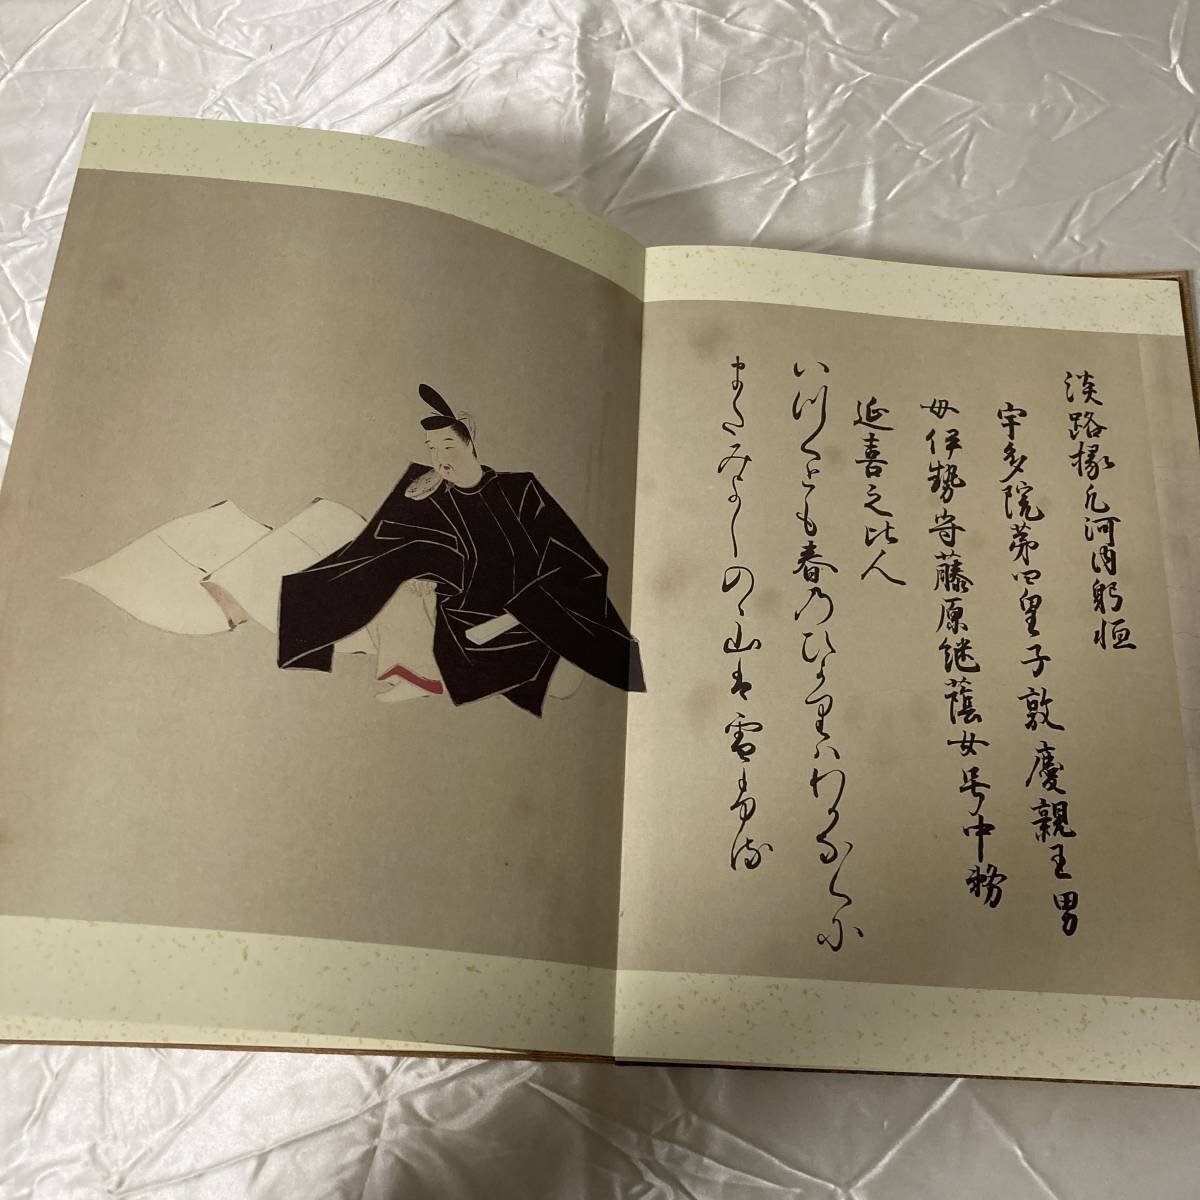 淡路掾凡河内躬恒
宇多院第四皇子敦慶親王男
母伊勢守藤原継蔭女号中務
延喜之比人
いつくとも春のひかりはわかなくに
またみよしのゝ山は雪ふる